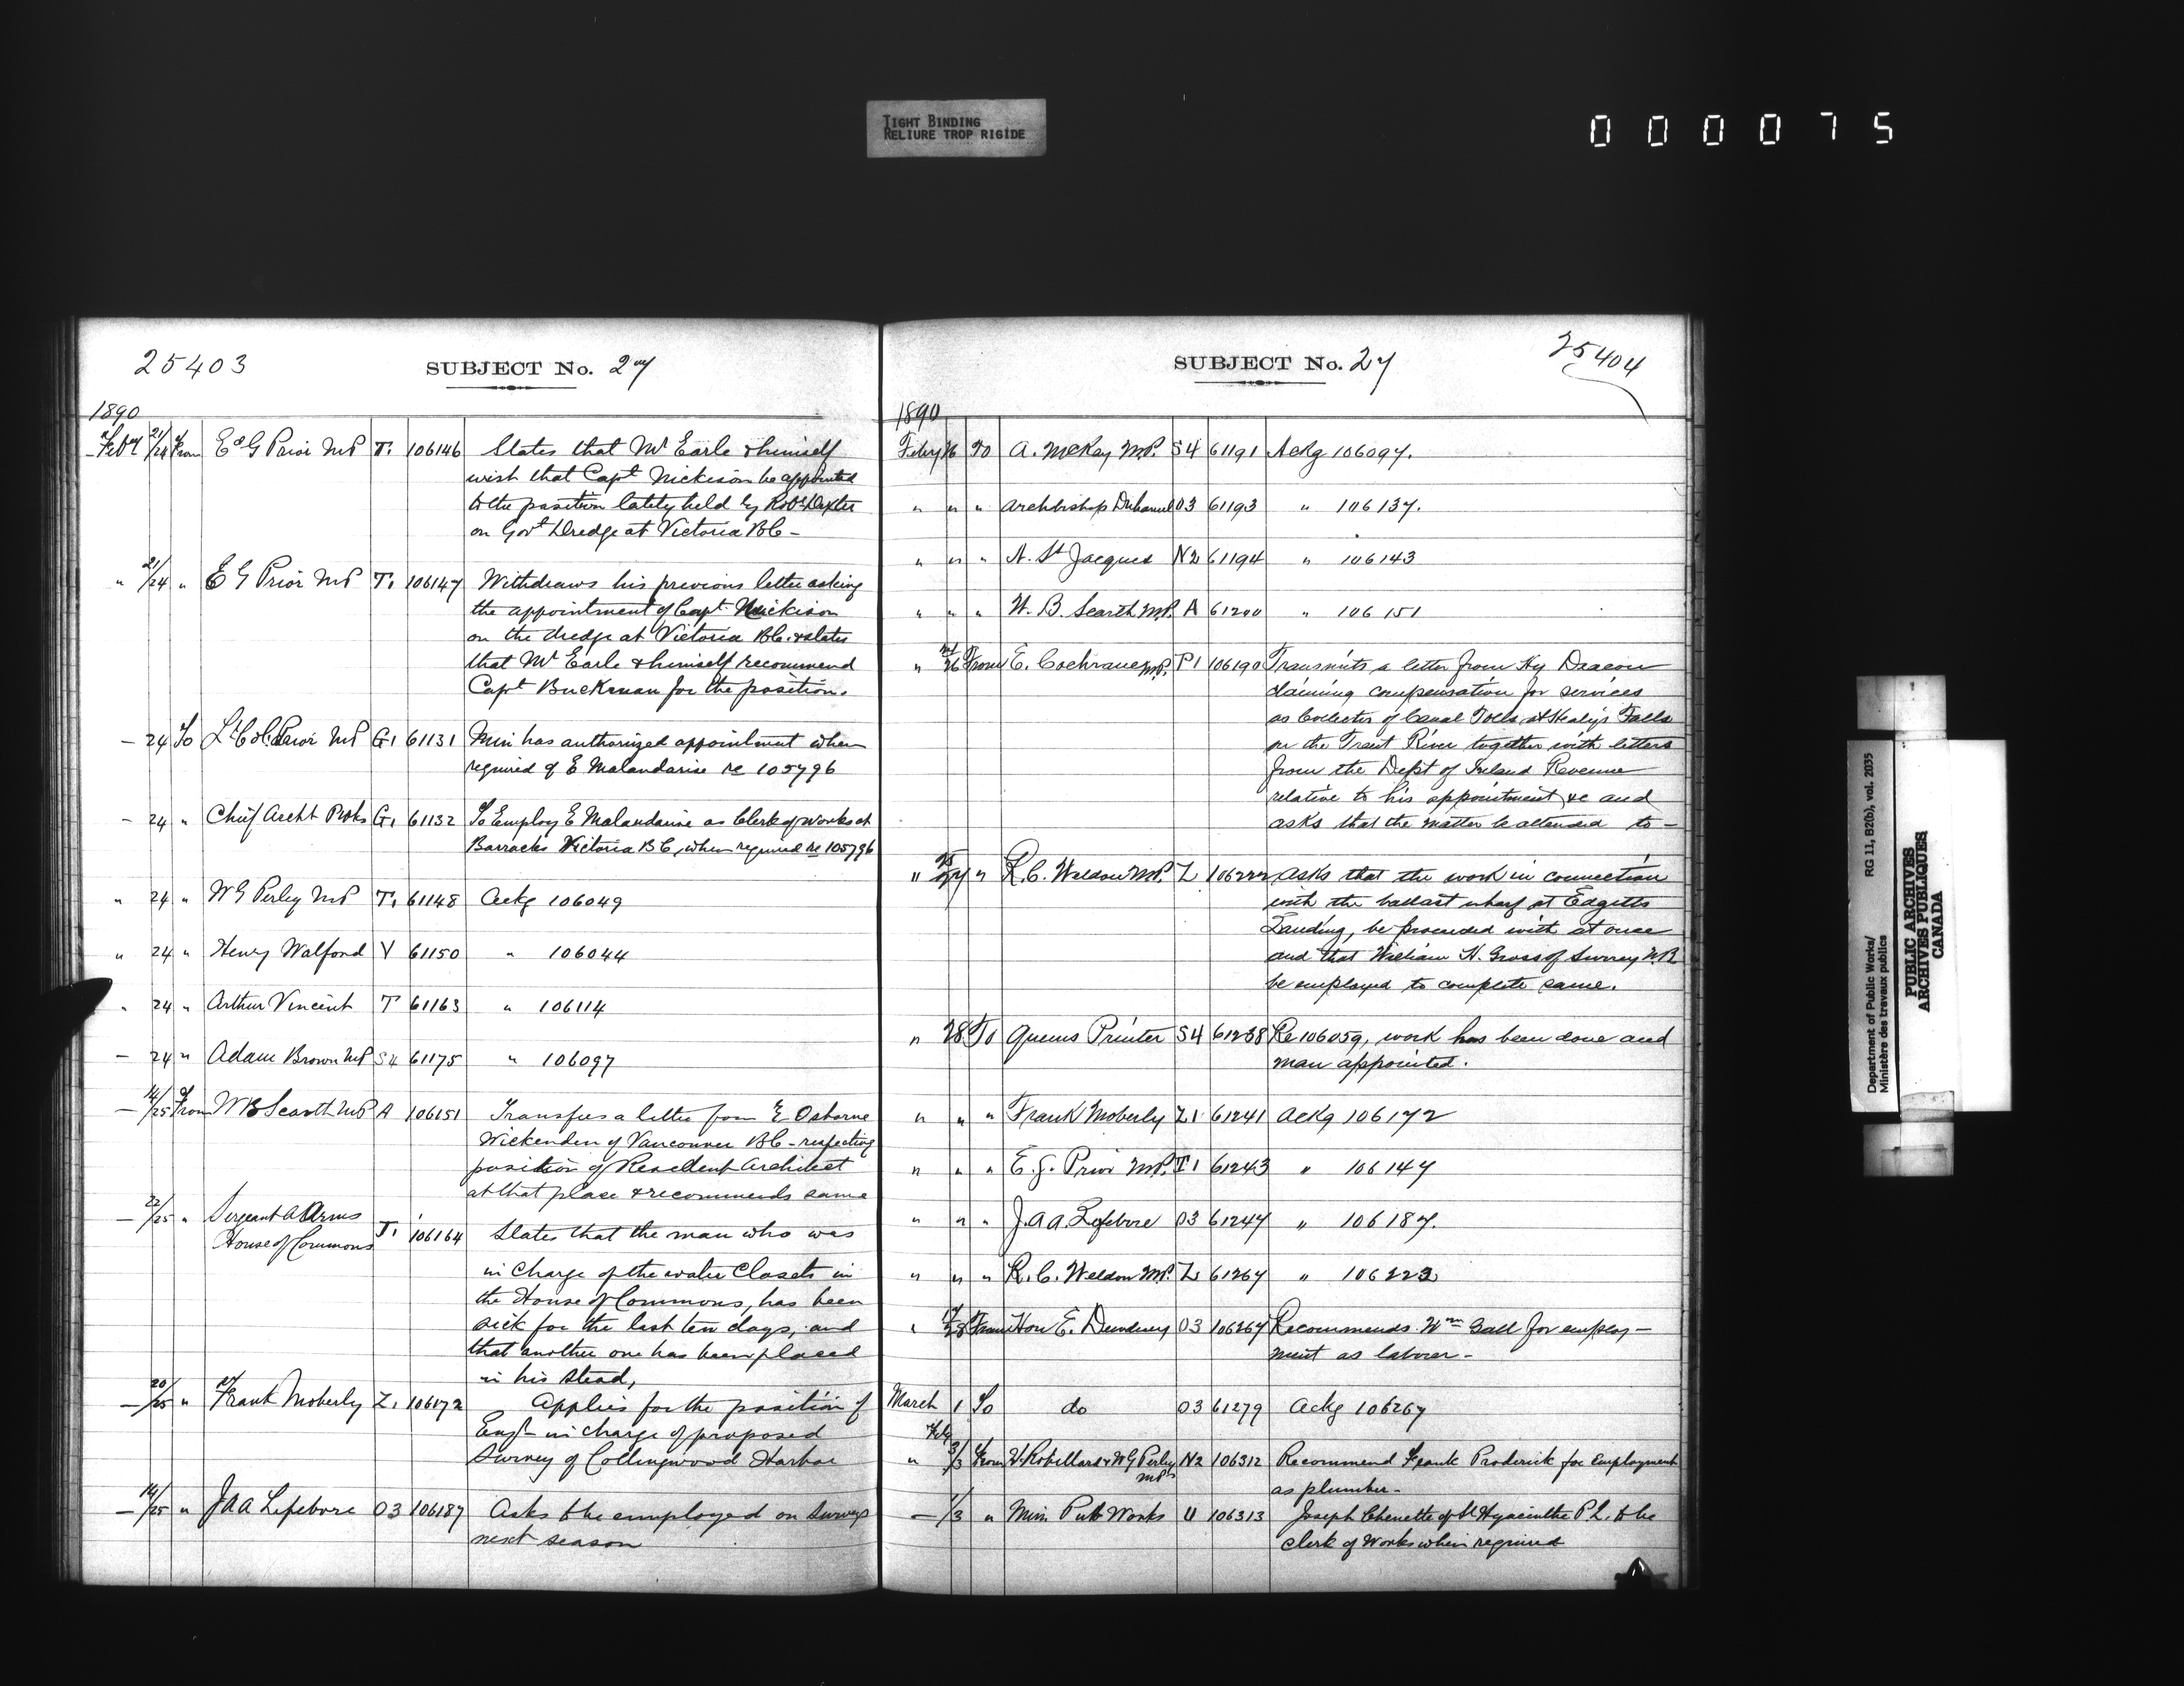 TIGHT BINDING
RELIURE TROP RIGIDE
000075
25403
SUBJECT No. 27
1890
Feby 21/24 From E G Prior MP T1 106146 States that Mr Earle & himself
wish that Capt Nickison be appointed
to the position lately held by Robt Dexter
on Govt Dredge at Victoria BC -
" 21/24 " E G Prior MP T1 106147 Withdraws his previous letter asking
the appointment of Capt. Nickison
on the dredge at Victoria BC. & states
that Mr Earle & himself recommend
Capt Buckman for the position.
- 24 To Lt Col. Prior MP G1 61131 Min has authorized appointment when
required of E Malandaine re 105796
- 24 " Chief Archt P Wks G1 61132 To Employ E Malandaine as Clerk of works at
Barracks Victoria BC, when required re 105796
" 24 " W G Perley MP T1 61148 Ackg 106049
" 24 " Henry Walford V 61150 " 106044
" 24 " Arthur Vincent T 61163 " 106114
- 24 " Adam Brown MP S4 61175 " 106097
- 14/25 From W B Scarth MP A 106151 Transfers a letter from E Osborne
Wickenden of Vancouver BC - respecting
position of Resident Architect
at that place & recommends same
- 22/25 " Sergeant at Arms
House of Commons T1 106164 States that the man who was
in charge of the water closets in
the House of Commons, has been
sick for the last ten days, and
that another one has been placed
in his stead,
- 20/25 " Frank Moberly Z1 106172 Applies for the position of
Engr in charge of proposed
Survey of Collingwood Harbor
- 14/25 " J A A Lefebvre O3 106187 Asks to be employed on surveys
next season
SUBJECT No. 27
25404
1890
Feby 26 To A. McKay M.P. S4 61191 Ackg 106097.
" " " Archbishop Duhamel O3 61193 " 106137.
" " " N. St Jacques N2 61194 " 106143
" " " W. B. Scarth M.P. A 61200 " 106151
" 26 From E. Cochrane M.P. P1 106190 Transmits a letter from Hy Deacon
claiming compensation for services
as Collector of Canal Tolls at Healy's Falls
on the Trent River together with letters
from the Dept of Inland Revenue
relative to his appointment &c and
asks that the matter be attended to -
" 25/27 " R. C. Weldon M.P. Z 106222 Asks that the work in connection
with the ballast wharf at Edgetts
Landing, be proceeded with at once
and that William H. Gross of Surrey N.B.
be employed to complete same.
" 28 To Queens Printer S4 61238 Re 106059, work has been done and
man appointed.
" " " Frank Moberly Z1 61241 Ackg 106172
" " " E. G. Prior M.P. T1 61243 " 106147
" " " J. A A. Lefebvre O3 61247 " 106187.
" " " R. C. Weldon M.P. Z 61267 " 106222
" 28 From Hon E. Dewdney O3 106267 Recommends Wm Gall for employ-
ment as laborer -
March 1 To do O3 61279 Ackg 106267
Feby
" 3/3 From H. Robillard & W G Perley
MPs N2 106312 Recommend Frank Proderick for Employment
as plumber -
- 1/3 " Min. Pub Works U 106313 Joseph Chenette of St Hyacinthe P.Q. to be
clerk of Works when required
Department of Public Works/
Ministère des travaux publics
RG 11, B2(b), vol. 2035
PUBLIC ARCHIVES
ARCHIVES PUBLIQUES
CANADA